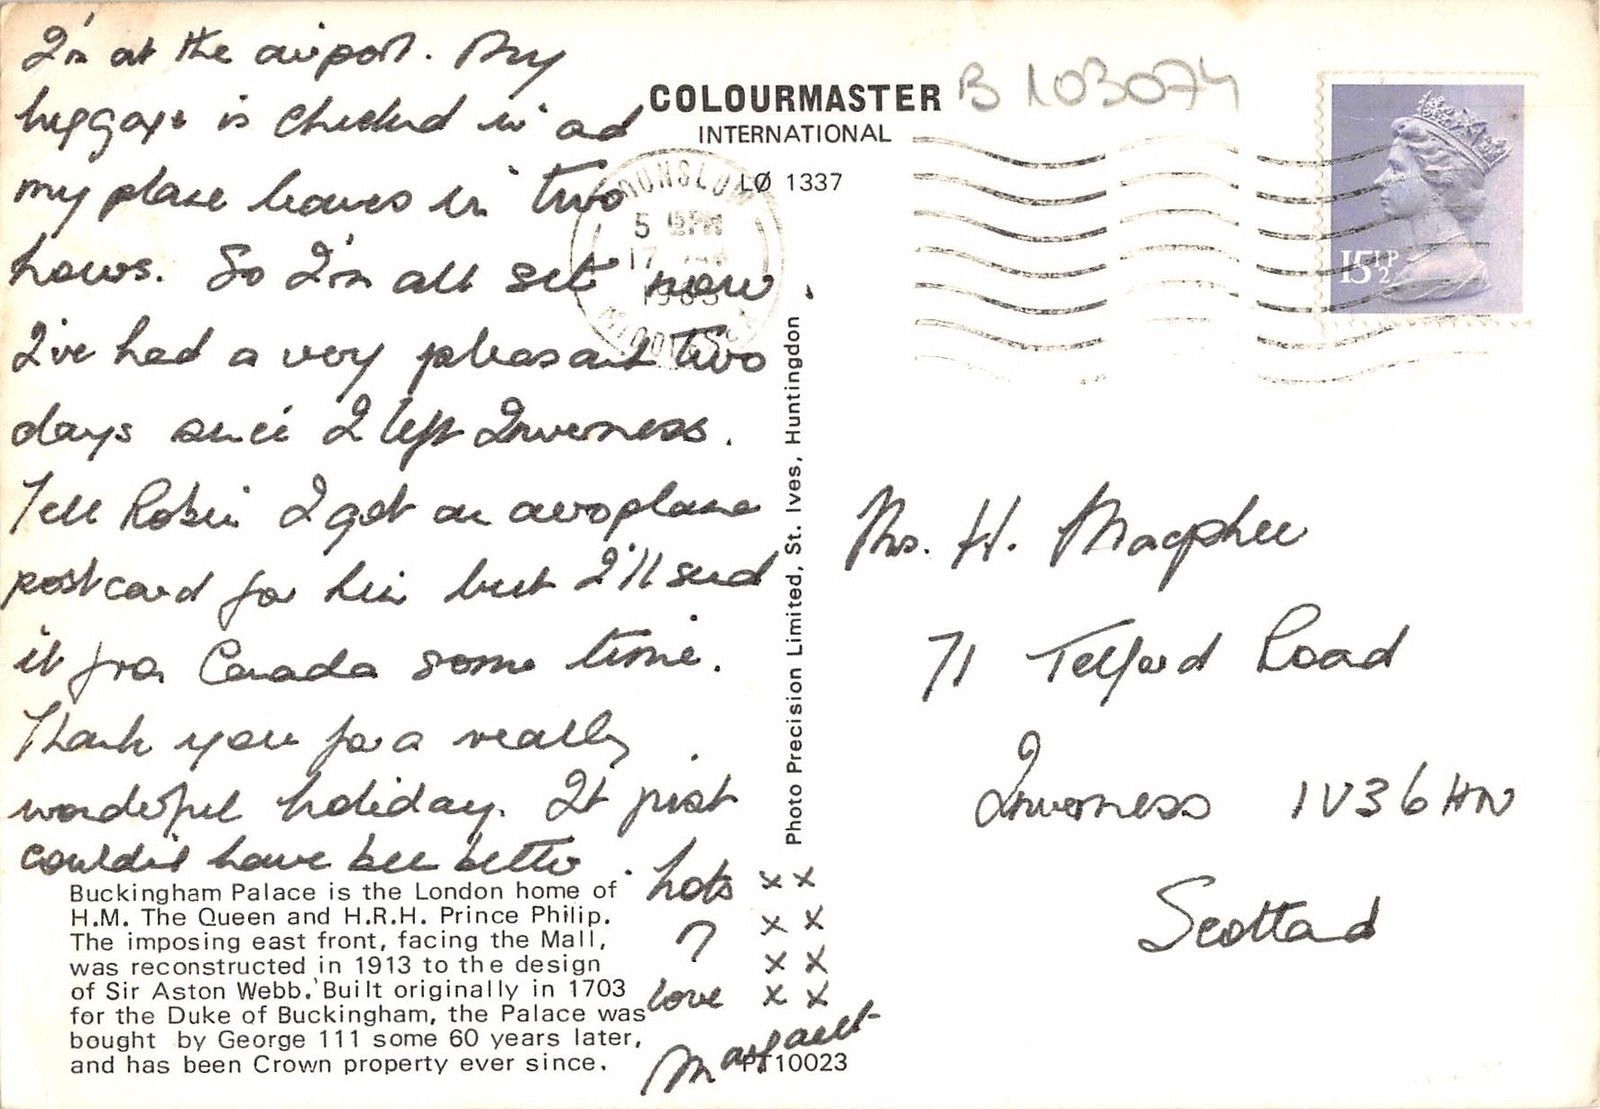 I'm at the airport. My
luggage is checked in ad
my plane leaves in two
hours. So I'm all set now.
I've had a very pleasant two
days since I left Inverness.
Tell Robin I got an aeroplane
postcard for him but I'll send
it from Canada some time.
Thank you for a really
wonderful holiday. It just
couldn't have been better.
lots x x
of x x
x x
love x x
Margaret
Buckingham Palace is the London home of
H.M. The Queen and H.R.H. Prince Philip.
The imposing east front, facing the Mall,
was reconstructed in 1913 to the design
of Sir Aston Webb. Built originally in 1703
for the Duke of Buckingham, the Palace was
bought by George 111 some 60 years later,
and has been Crown property ever since.
PT10023
COLOURMASTER
INTERNATIONAL
LØ 1337
B 103074
HOUNSLOW
5 PM
17
1983
MIDDLESEX
15½P
Photo Precision Limited, St. Ives, Huntingdon
Mrs. H. Macphee
71 Telford Road
Inverness IV3 6HN
Scotland